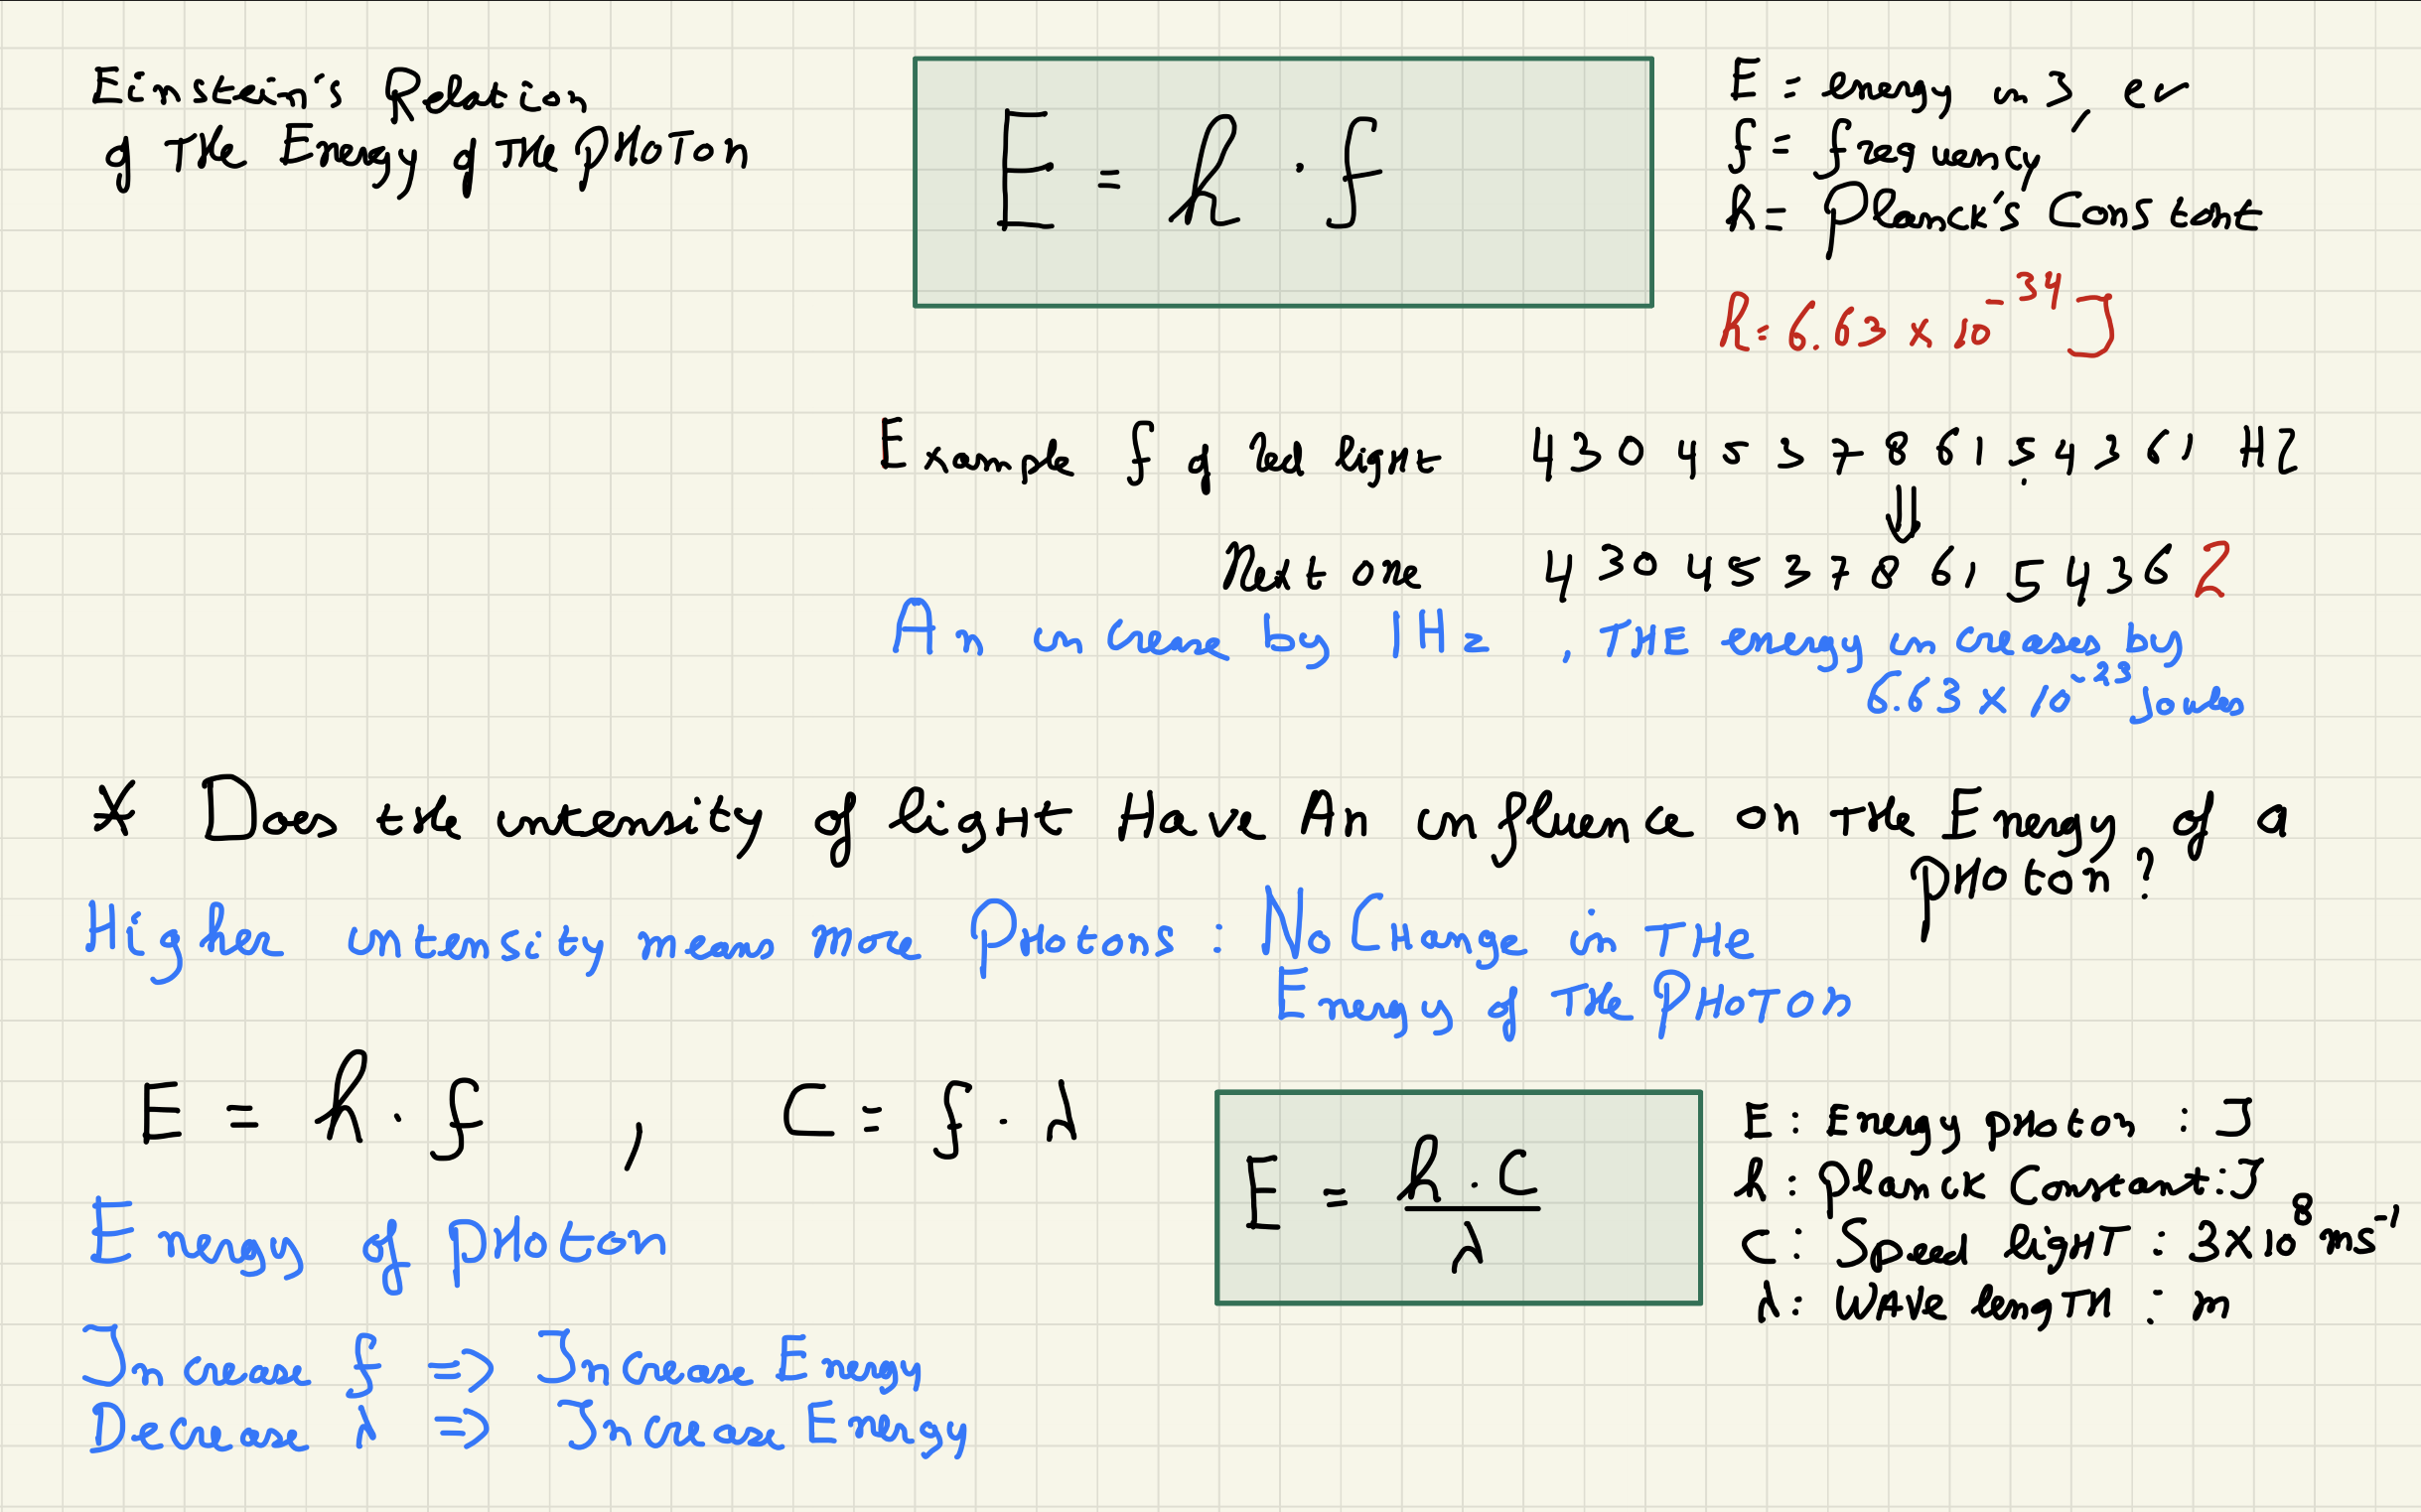 Einstein's Relation
of THe Energy of THe PHOTON
E = h · f
E = energy in J, ev
f = frequency
h = Planck's Constant
h = 6.63 x 10⁻³⁴ J
Example f of Red light 430 453 786 154 361 HZ
⇓
Next one 430 453 786 154 362
An increase by 1Hz , THE energy increases by
6.63 x 10⁻²³ Joules
* Does the intensity of ligHt Have An influence on THe Energy of a
PHoton?
Higher intensity means more PHotons : No CHange in THe
Energy of THe PHOTON
E = h · f , C = f · λ
E = h · C / λ
E : Energy pHoton : J
h : Planck Constant : J
C : Speed ligHT : 3x10⁸ ms⁻¹
λ : WAVe lengTH : m
Energy of pHoton
Increase f => Increase Energy
Decrease λ => Increase Energy